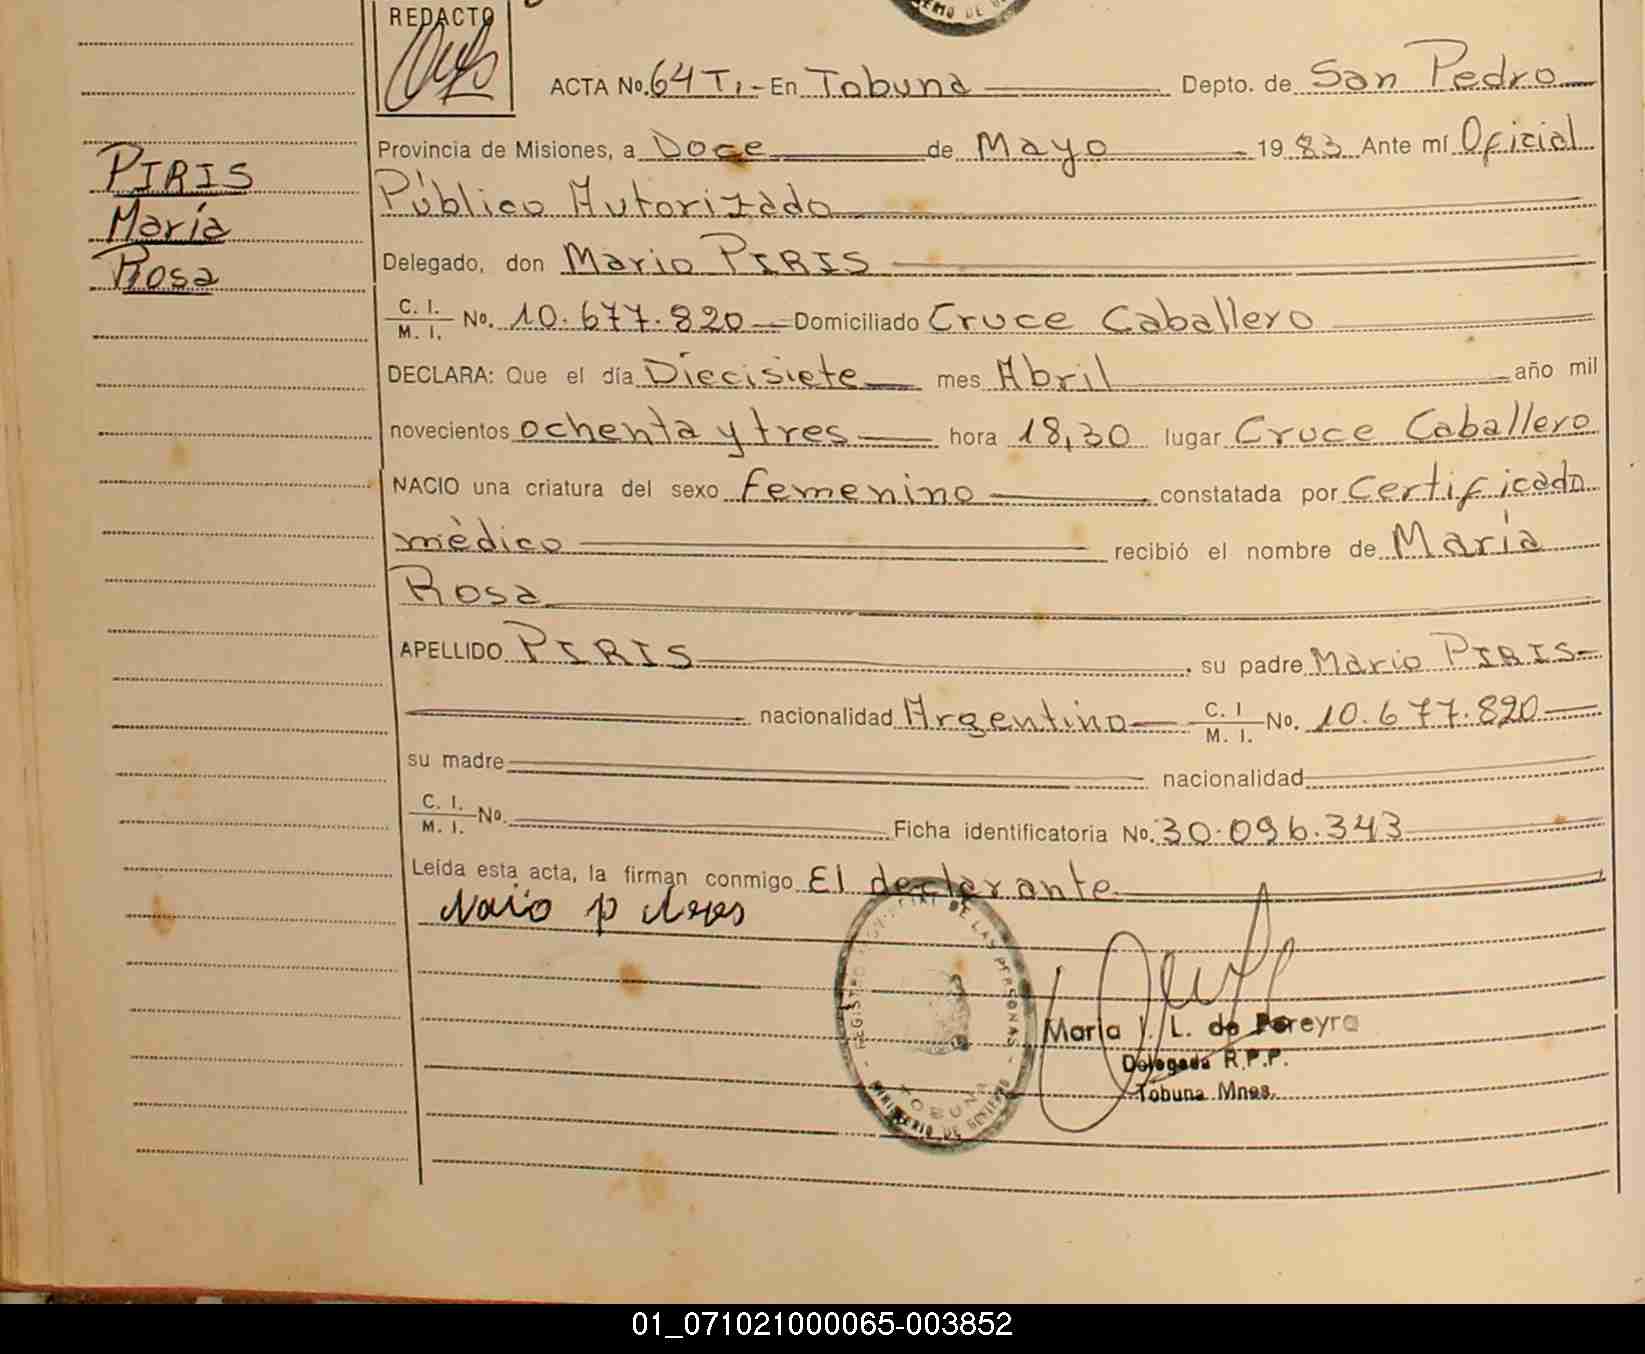 REDACTO
ACTA No. 64 T1.- En Tobuna Depto. de San Pedro
Provincia de Misiones, a Doce de Mayo 1983 Ante mí Oficial
Público Autorizado
Delegado, don Mario PIRIS
C. I.
M. I. No. 10.677.820 Domiciliado Cruce Caballero
DECLARA: Que el día Diecisiete mes Abril año mil
novecientos ochenta y tres hora 18,30 lugar Cruce Caballero
NACIO una criatura del sexo femenino constatada por Certificado
mèdico recibió el nombre de María
Rosa
APELLIDO PIRIS su padre Mario PIRIS
nacionalidad Argentino C. I M. I. No. 10.677.820
su madre nacionalidad
C. I. M. I. No. Ficha identificatoria No. 30.096.343
Leída esta acta, la firman conmigo El declarante
PIRIS
María
Rosa
REGISTRO PROVINCIAL DE LAS PERSONAS
TOBUNA
MINISTERIO DE GOBIERNO
María L. de Pereyra
Delegada R.P.P.
Tobuna Mnes.
01_071021000065-003852